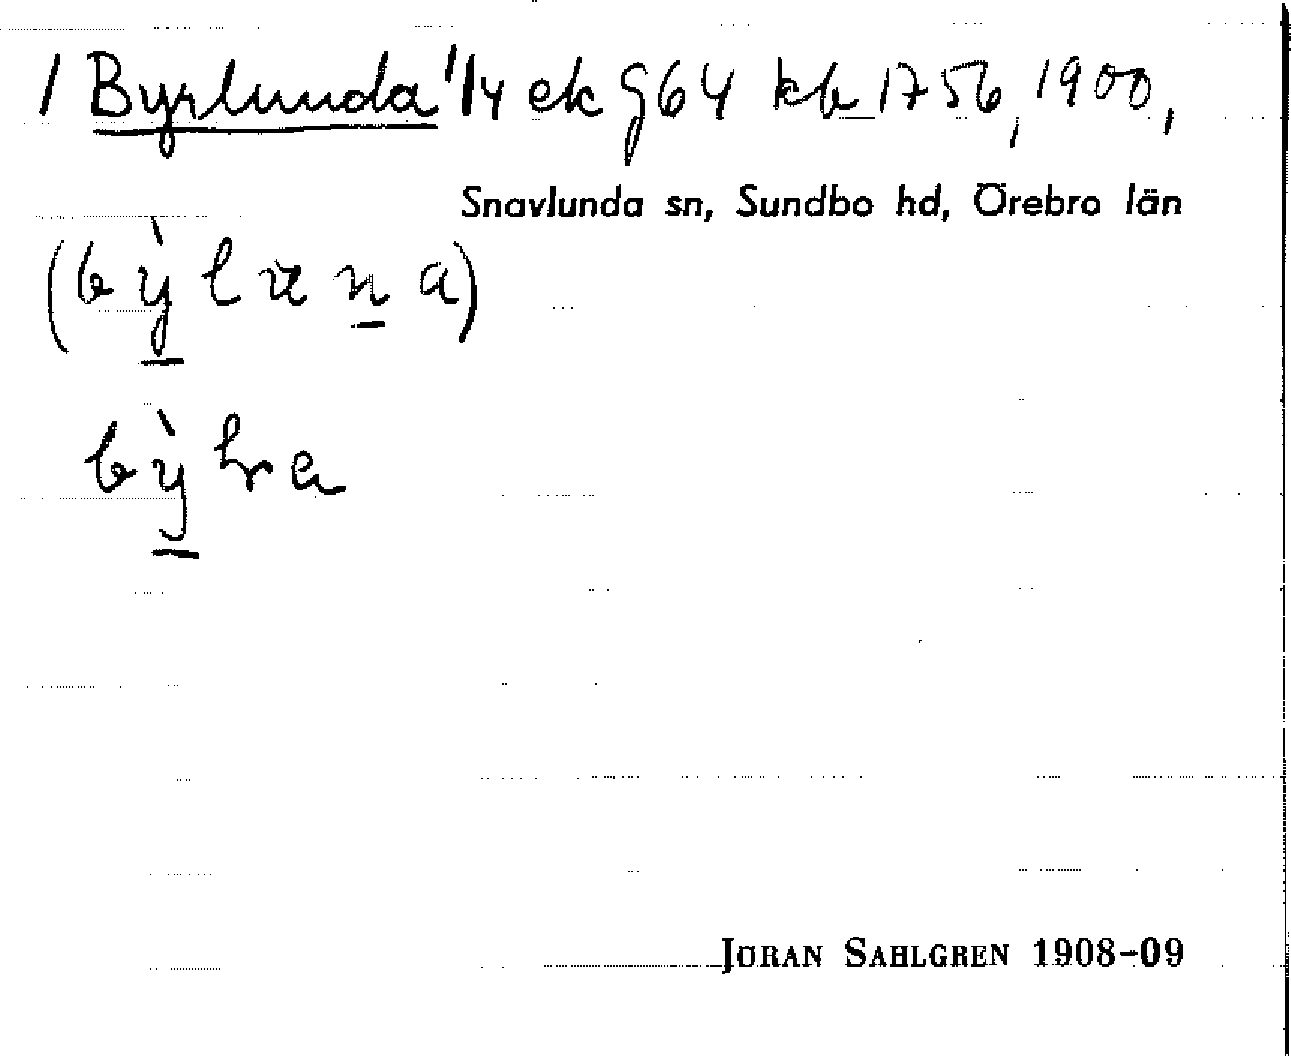 1 Byrlunda 1/4 ek g64 kb 1756, 1900,
Snavlunda sn, Sundbo hd, Örebro län
JÖRAN SAHLGREN 1908-09